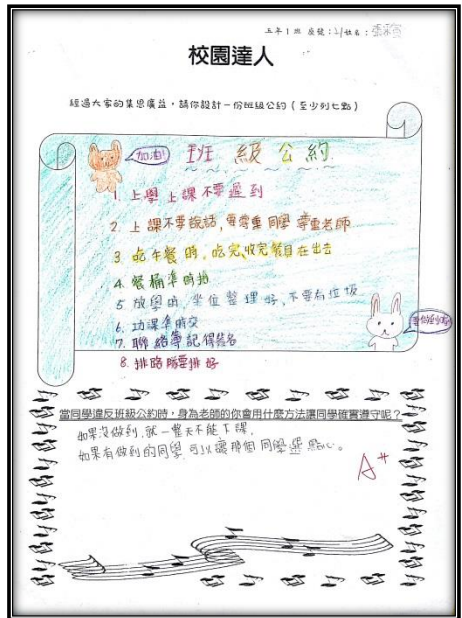 五年1班 座號:21姓名:張
校園達人
經過大家的集思廣益,請你設計一份班級公約(至少列七點)
加油!
班 級 公 約
1. 上學上課不要遲到
2. 上課不要說話,要尊重同學尊重老師
3. 吃午餐時,吃完,收完餐具在出去
4. 餐桶準時抬
5 放學時 坐位整理好、不要有垃圾
6. 功課準時交
7. 聯絡簿記得簽名
8. 排路隊要排好
當同學違反班級公約時,身為老師的你會用什麼方法讓同學確實遵守呢?
如果沒做到,就一整天不能下課,
如果有做到的同學,可以讓那個同學選點心。
A+